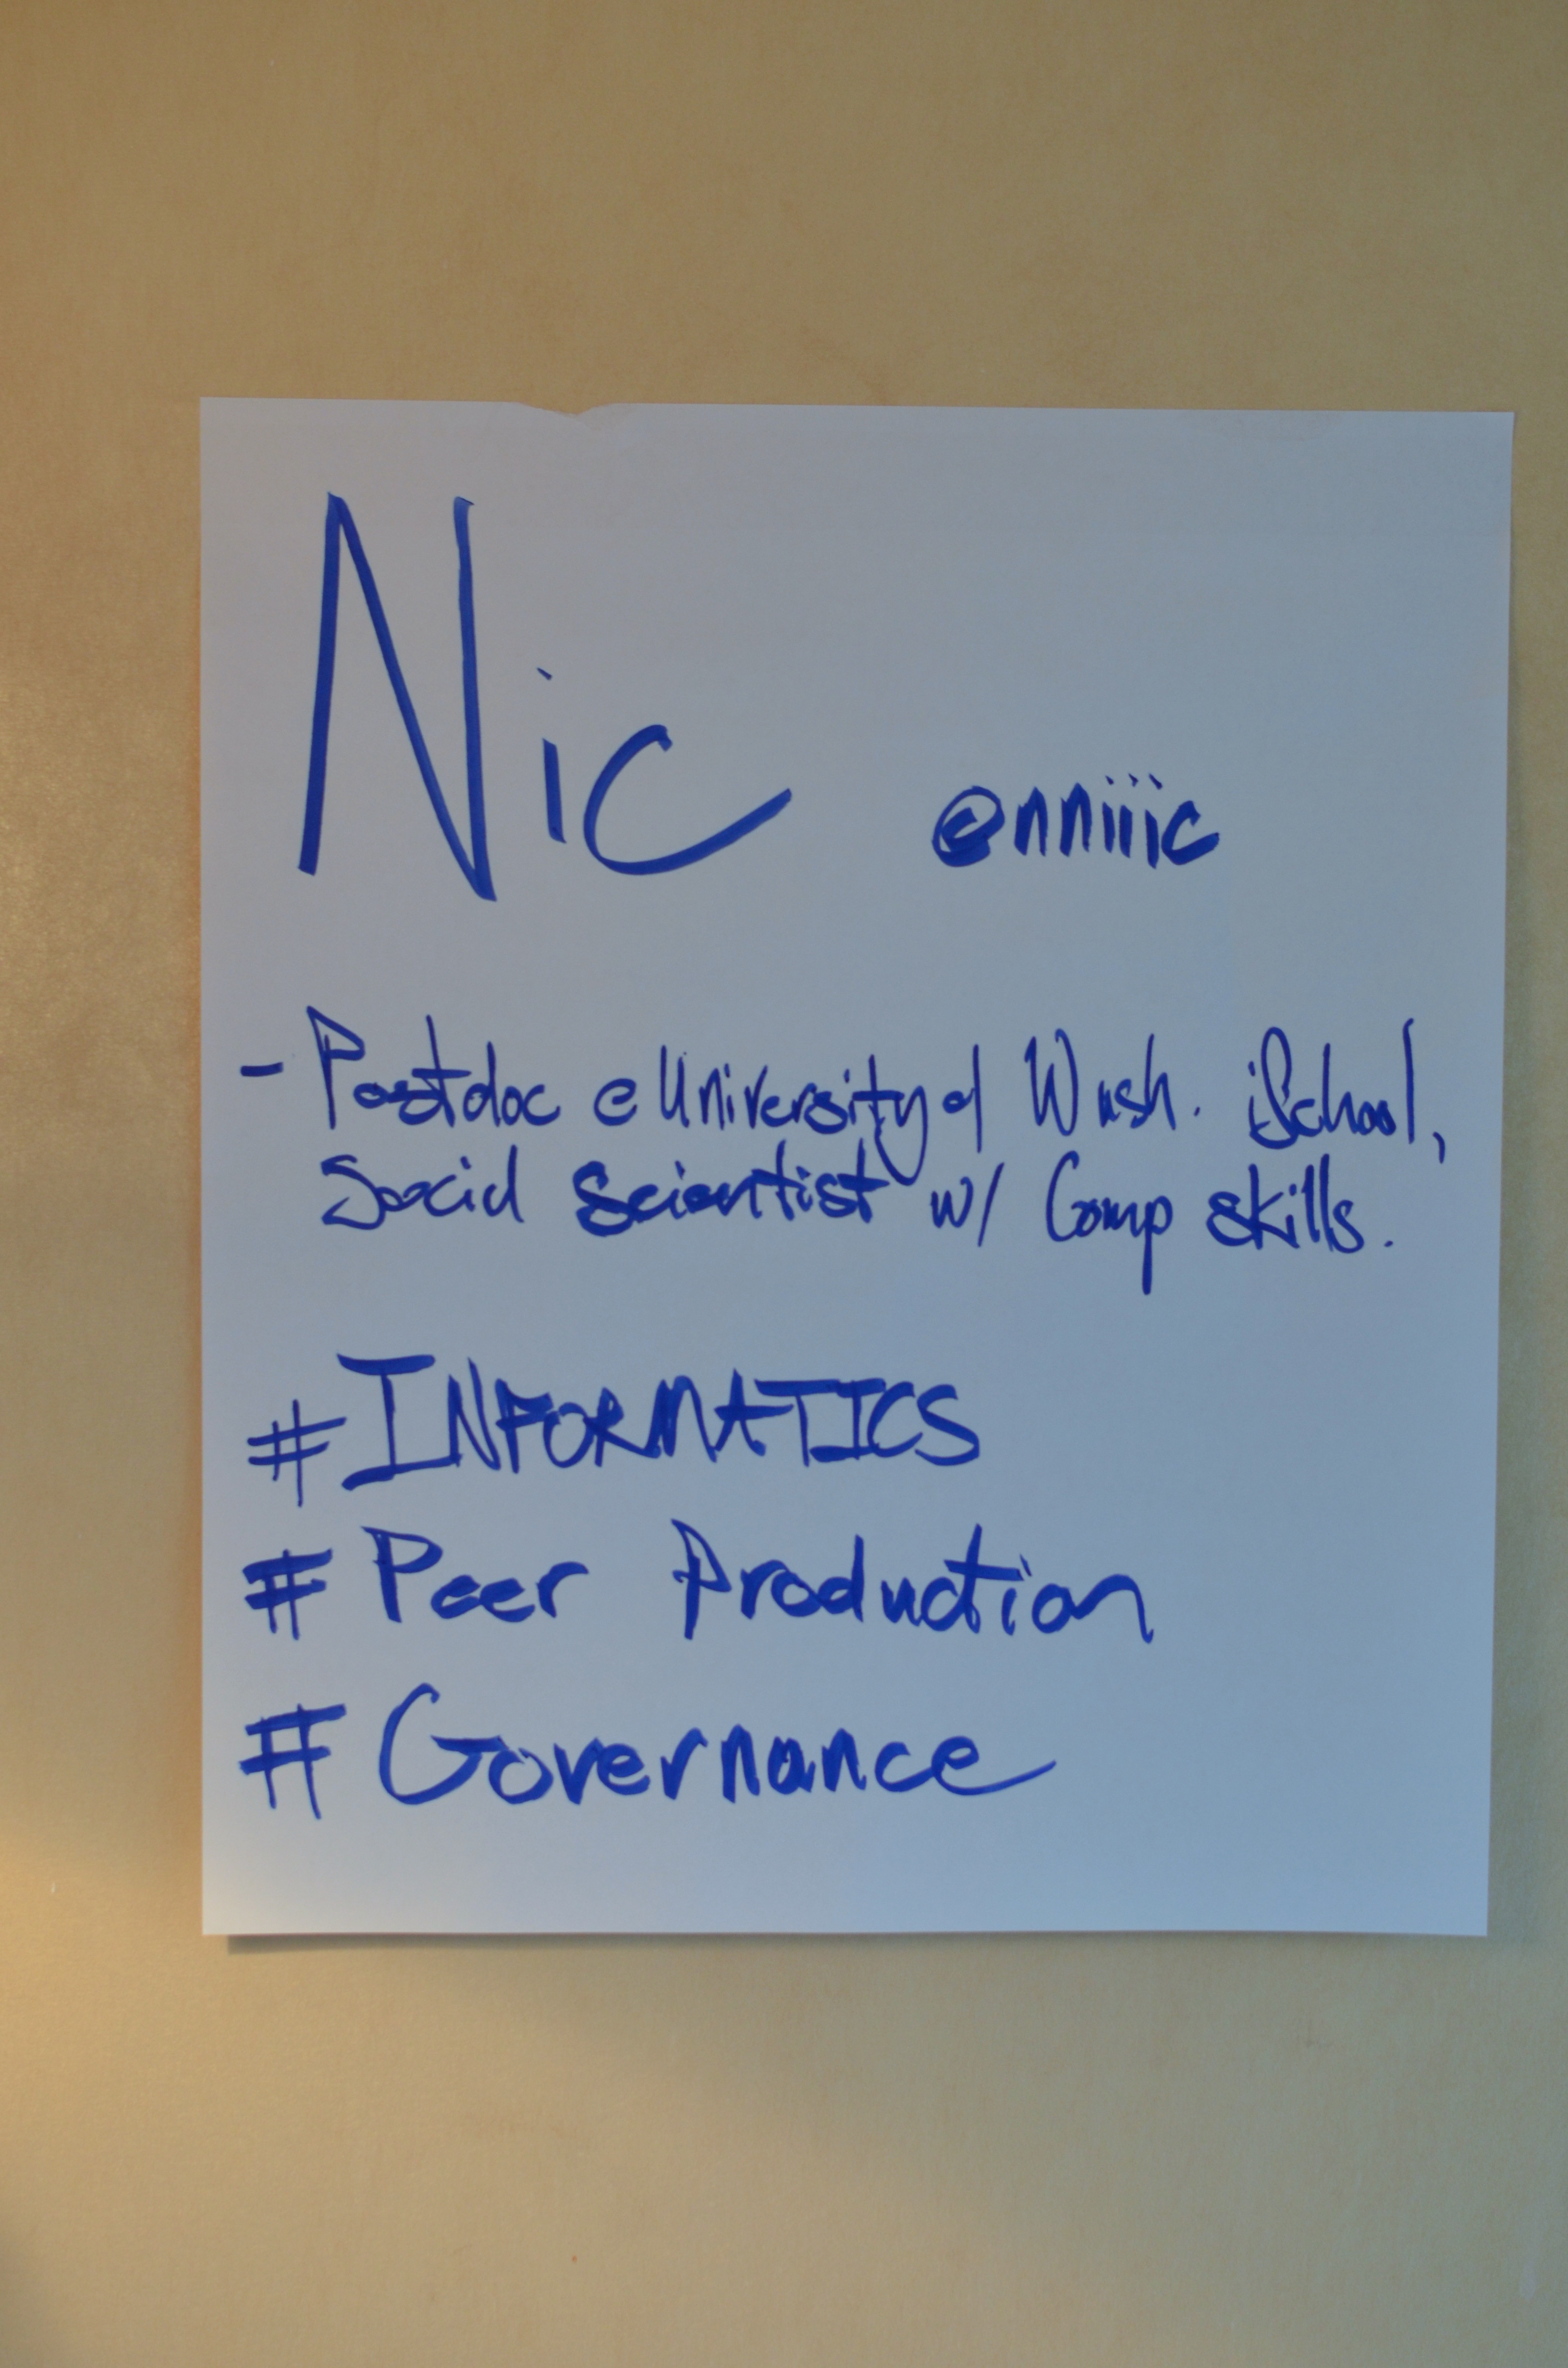 Nic @nniiic
- Postdoc @ University of Wash. iSchool,
Social Scientist w/ Comp skills.
# INFORMATICS
# Peer Production
# Governance